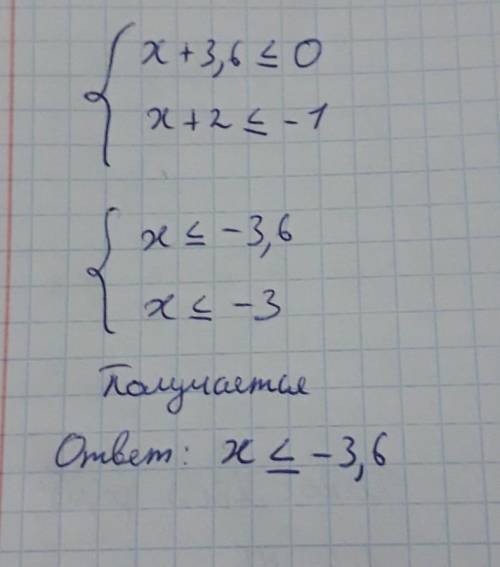 x + 3,6 ≤ 0
x + 2 ≤ -1
x ≤ -3,6
x ≤ -3
Получается
Ответ: x ≤ -3,6